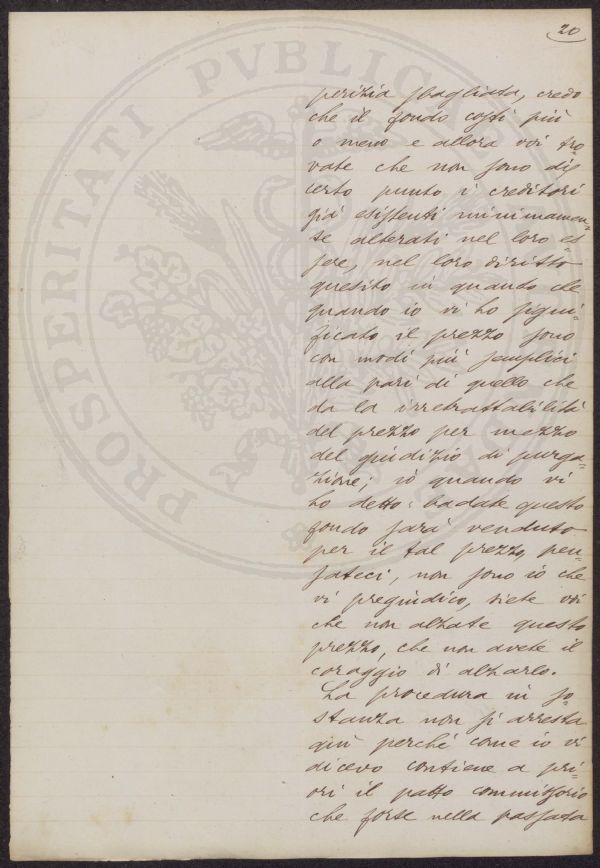 20
perizia sbagliata, credo
che il fondo costi più
o meno e allora voi tro
vate che non sono di
certo punto i creditori
già esistenti minimamen=
te alterati nel loro es=
sere, nel loro diritto
quesito in quando che
quando io vi ho signi=
ficato il prezzo sono
con modi più semplici
alla pari di quello che
da la irretrattabilità
del prezzo per mezzo
del giudizio di purga=
zione; io quando vi
ho detto: badate questo
fondo sarà venduto
per il tal prezzo, pen=
sateci, non sono io che
vi pregiudico, siete voi
che non alzate questo
prezzo, che non avete il
coraggio di alzarlo.
La procedura in so=
stanza non si arresta
qui perché come io vi
dicevo contiene a pri=
ori il patto commissorio
che forse nella passata
PROSPERITATI PVBLICAE